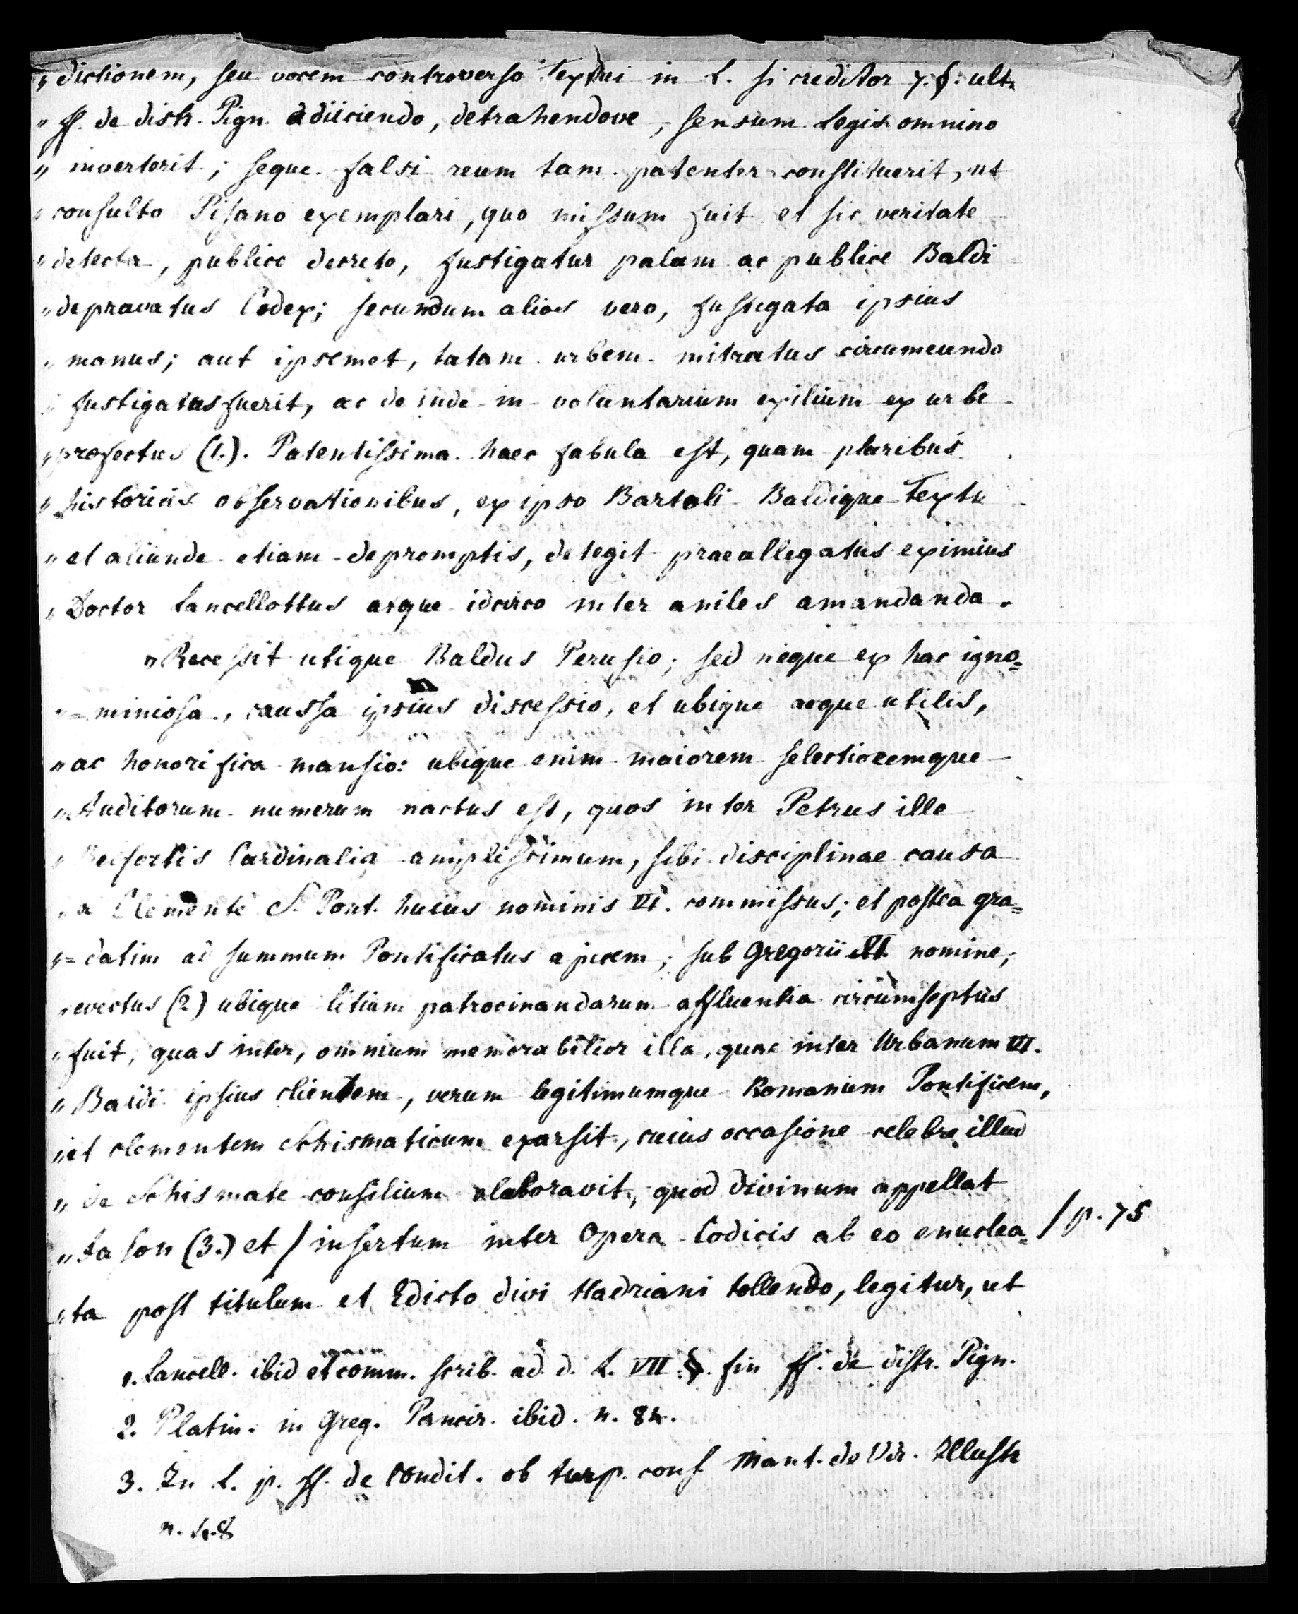 „ dictionem, seu vocem controverso Textui in L. si creditor 7. §. ult.
„ ff. de distr. Pign. adiiciendo, detrahendove, sensum Legis omnino
„ inverterit; seque falsi reum tam patenter constituerit, ut
„ consulto Pisano exemplari, quo missum fuit et sic veritate
„ detecta, publico decreto, fustigatur palam ac publice Baldi
„ depravatus Codex; secundum alios vero, fustigata ipsius
„ manus; aut ipsemet, totam urbem mitratus circumeundo
„ fustigatus fuerit, ac deinde in voluntarium exilium ex urbe
„ profectus (1.). Patentissima haec fabula est, quam pluribus
„ historicis observationibus, ex ipso Bartoli Baldique Textu
„ et aliunde etiam depromptis, detegit praeallegatus eximius
„ Doctor Lancellottus aeque idcirco inter aniles amandanda.
„ Recessit utique Baldus Perusio; sed neque ex hac igno=
„ =miniosa, caussa ipsius discessio, et ubique aeque utilis,
„ ac honorifica mansio: ubique enim maiorem selectioremque
„ Auditorum numerum nactus est, quos inter Petrus ille
„ Belfortis Cardinalis amplissimum, sibi disciplinae causa
„ a Clemente S. Pont. huius nominis VI. commissus; et postea gra=
„ =datim ad summum Pontificatus apicem, sub Gregorii XI nomine,
„ evectus (2) ubique litium patrocinandarum affluentia circumseptus
„ fuit, quas inter, omnium memorabilior illa, quae inter Urbanum VI.
„ Baldi ipsius clientem, verum legitimumque Romanum Pontificem,
„ et Clementem Schismaticum exarsit, cuius occasione celebre illud
„ de Schismate consilium elaboravit, quod divinum appellat
„ Iason (3.) et / insertum inter Opera Codicis ab eo enuclea= / p. 75
„ ta post titulum et Edicto divi Hadriani tollendo, legitur, ut
1. Lancell. ibid et comm. scrib. ad d. L. VII. §. fin ff. de distr. Pign.
2. Platin. in Greg. Pancir. ibid. n. 84.
3. In L. p. ff. de condit. ob turp. caus Mant. de Vir. Illustr
n. 48